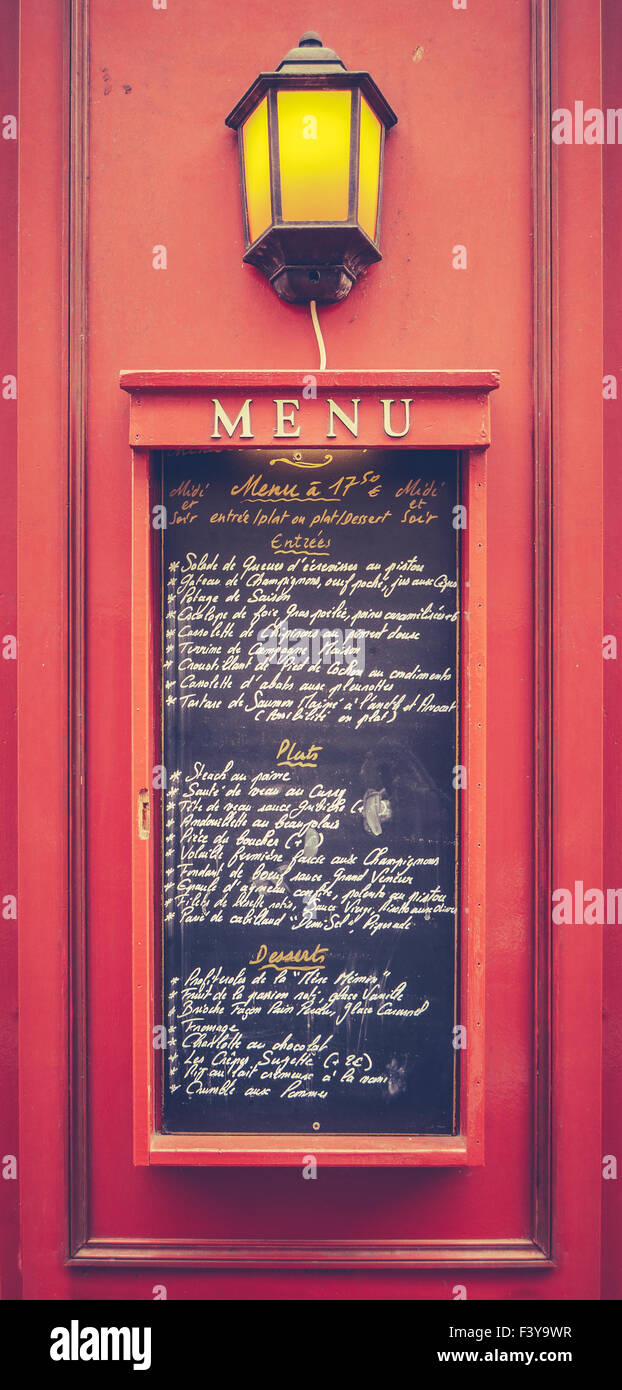 MENU
Midi et Soir
Menu à 17⁵⁰ €
Midi et Soir
entrée/plat ou plat/Dessert
Entrées
* Salade de Queues d'écrevisses au pistou
* Gateau de Champignons, oeuf poché, jus aux Cèpes
* Potage de Saison
* Escalope de foie Gras poêlée, poires caramélisées
* Cassolette de Chipirons au piment doux
* Terrine de Campagne Maison
* Croustillant de Pied de Cochon au condiments
* Cassolette d'abats aux pleurottes
* Tartare de Saumon Mariné à l'aneth et Avocat
(Possibilité en plat)
Plats
* Steack au poivre
* Sauté de veau au Curry
* Tête de veau sauce Gribiche (+
* Andouillette au beaujolais
* Pièce du boucher (+
* Volaille fermière farcie aux Champignons
* Fondant de boeuf sauce Grand Veneur
* Epaule d'agneau confite, polenta au pistou
* Filets de rôti, Sauce Vierge, Risotto aux Olives
* Pavé de cabillaud "Demi-Sel", Piperade
Desserts
* Profiteroles de la "Mère Mémèn"
* Fruit de la passion roti, glace Vanille
* Brioche Façon Pain Perdu, Glace Caramel
* Fromage
* Charlotte au chocolat
* Les Crêpes Suzette (+ 2€)
* Riz au lait crémeux à la
* Crumble aux Pommes
alamy
alamy
Image ID: F3Y9WR
www.alamy.com